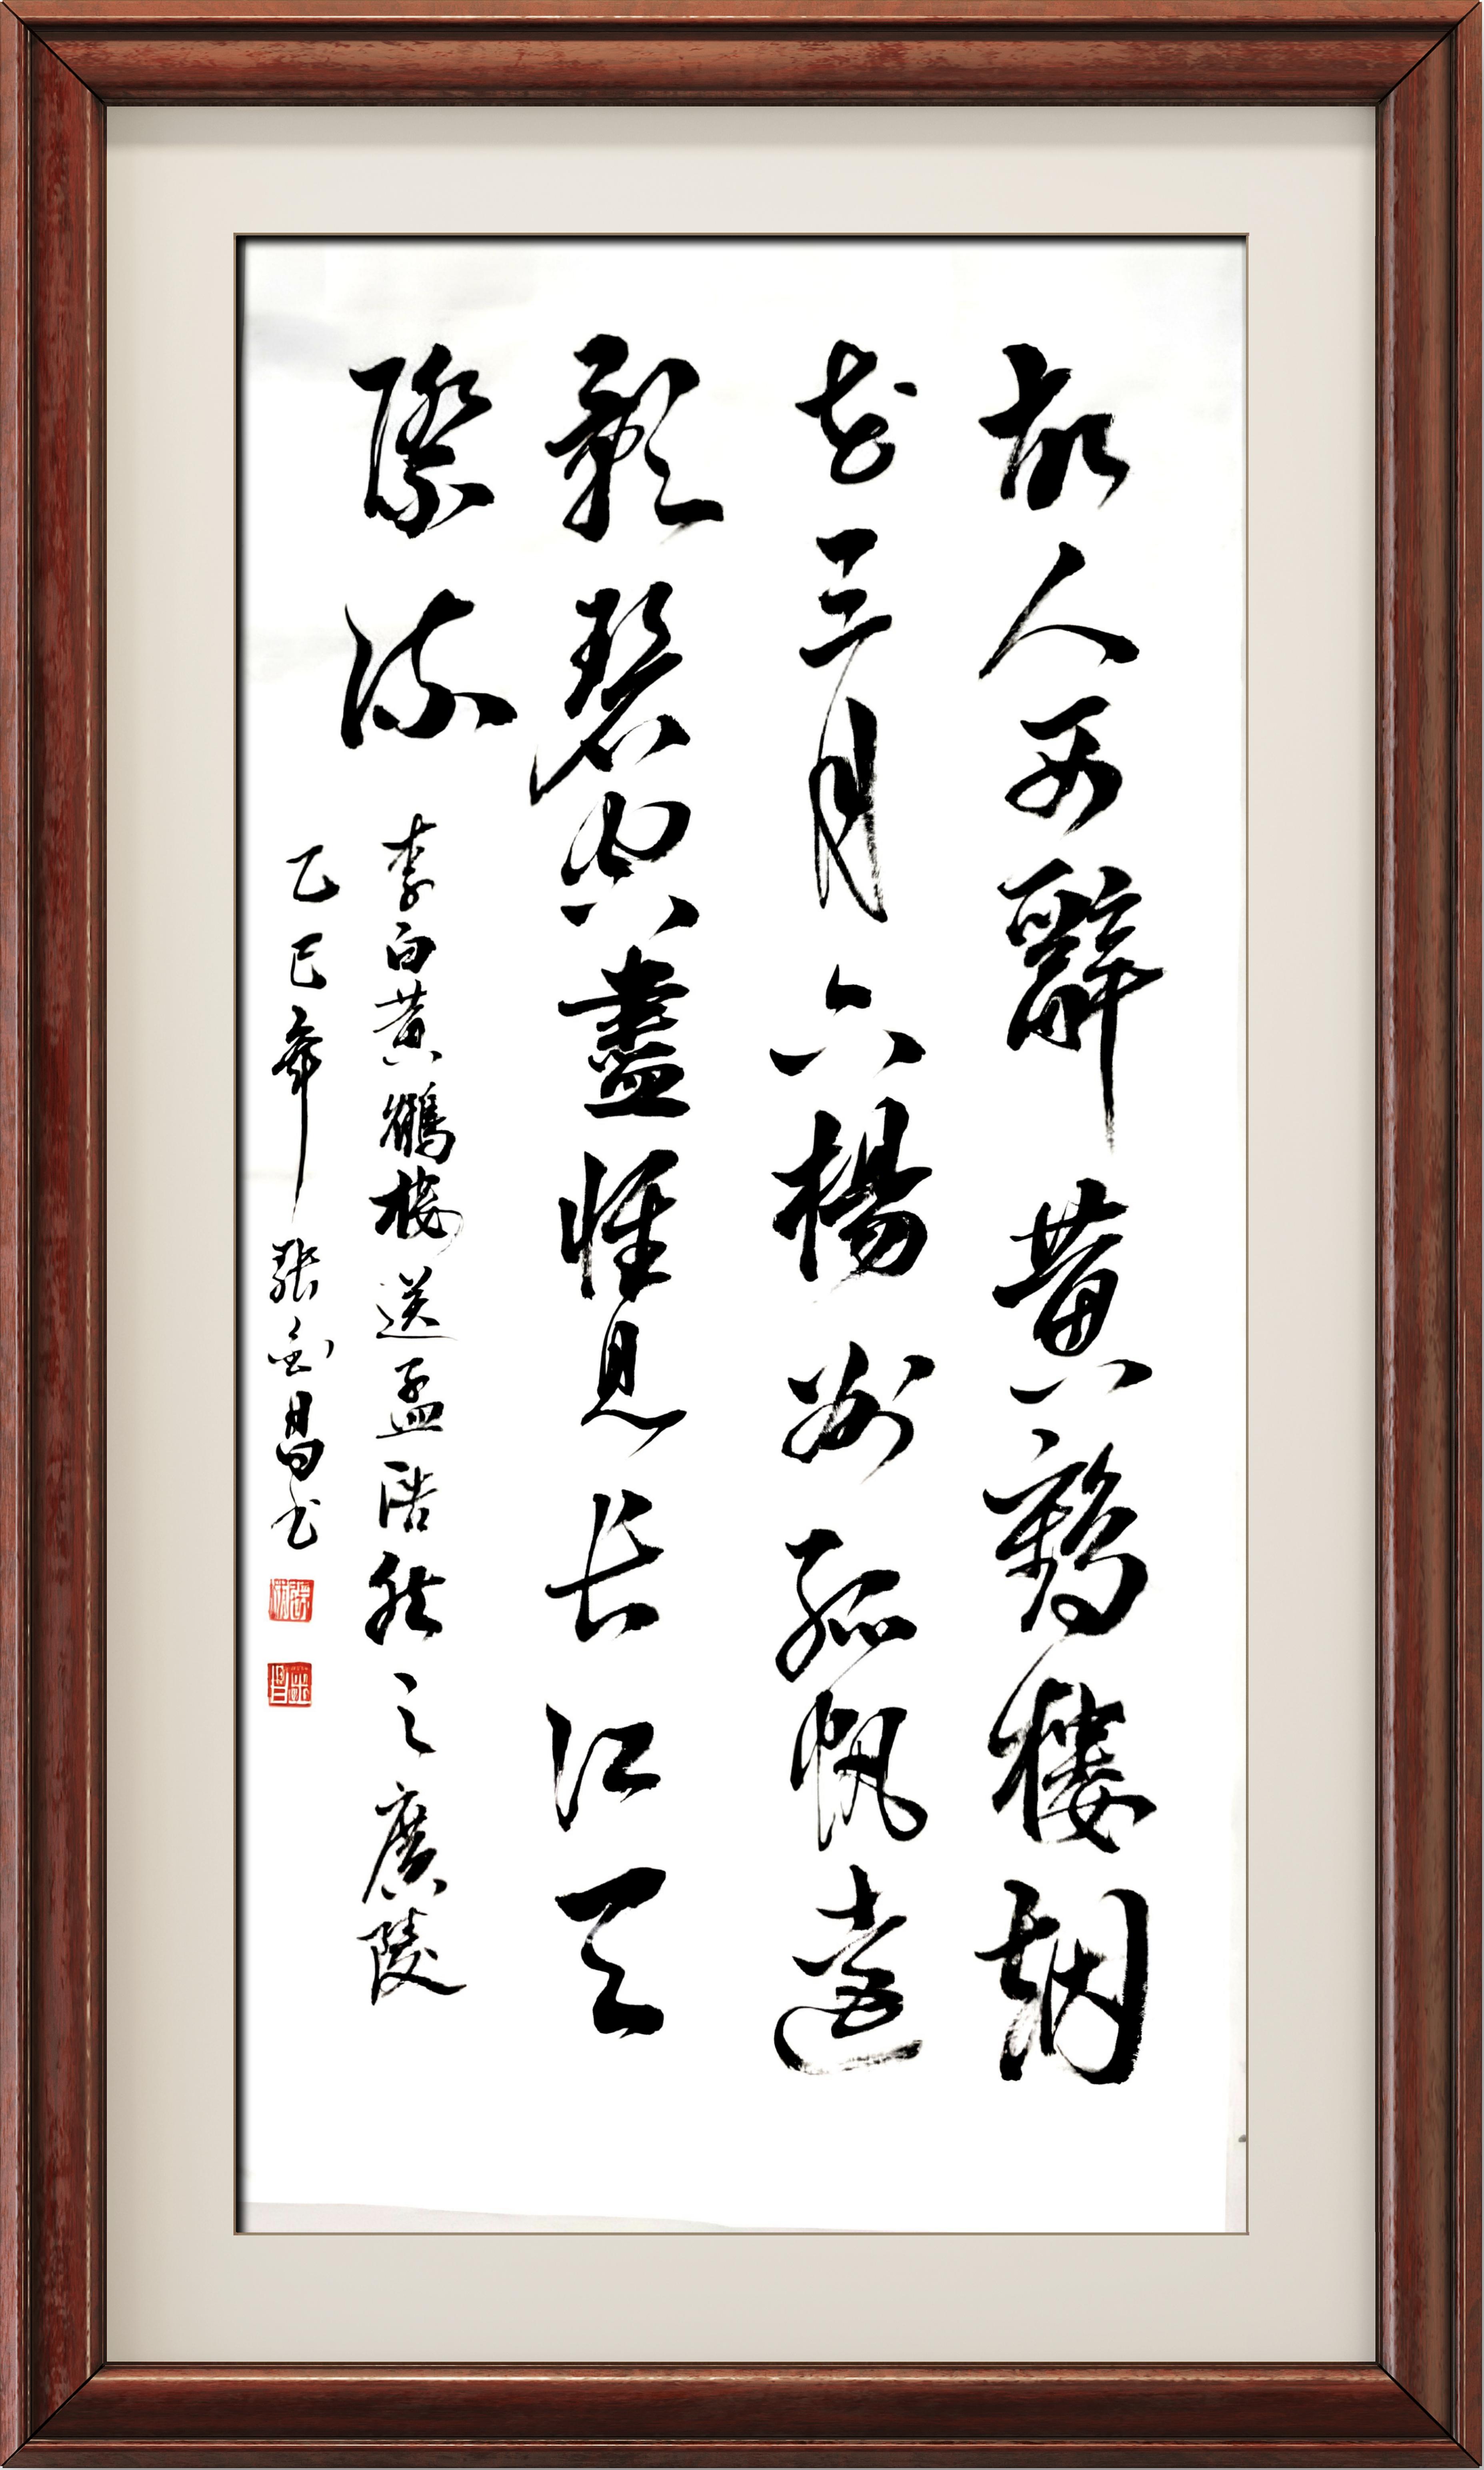 故人西辭黄鶴樓烟
花三月下楊州孤帆遠
影碧空盡惟見长江天
際流
李白黄鶴樓送孟浩然之廣陵
乙巳年張金昌书
金昌